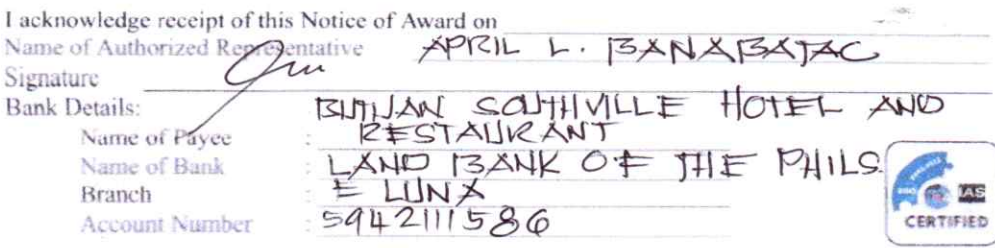 I acknowledge receipt of this Notice of Award on
Name of Authorized Representative APRIL L. BANABATAC
Signature
Bank Details: BUTUAN SOUTHVILLE HOTEL AND
Name of Payee : RESTAURANT
Name of Bank : LAND BANK OF THE PHILS
Branch : E LUNA
Account Number : 5942111586
IAS
CERTIFIED